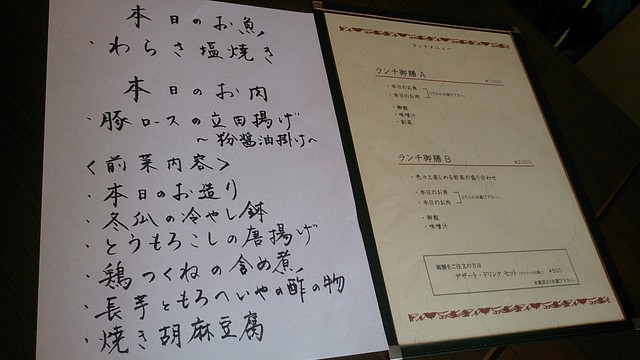 本日のお魚
・わらさ塩焼き
本日のお肉
・豚ロースの立田揚げ
～粉醤油掛け～
<前菜内容>
・本日のお造り
・冬瓜の冷やし鉢
・とうもろこしの唐揚げ
・鶏つくねの含め煮
・長芋ともろへいやの酢の物
・焼き胡麻豆腐
ランチメニュー
ランチ御膳 A
・本日のお魚
・本日のお肉
・御飯
・味噌汁
・副菜
ランチ御膳 B ¥2,000
・色々と楽しめる前菜の盛り合わせ
・本日のお魚
・本日のお肉
・御飯
・味噌汁
御膳をご注文の方は
デザート・ドリンク セット ¥500